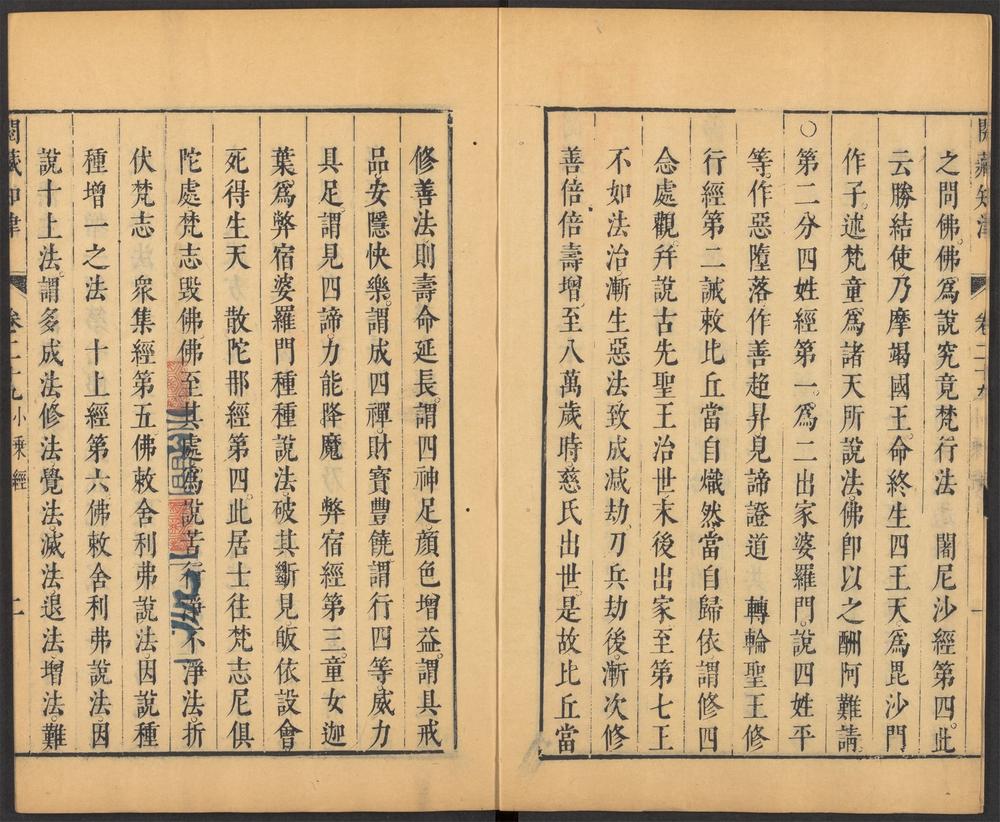 之問佛。佛爲說究竟梵行法　闍尼沙經第四。此
云勝結使乃摩竭國王。命終生四王天。爲毘沙門
作子。述梵童爲諸天所說法。佛卽以之酬阿難請
○第二分四姓經第一。爲二出家婆羅門。說四姓平
等。作惡墮落。作善趂昇。見諦證道　轉輪聖王修
行經第二誡敕比丘當自熾然。當自歸依。謂修四
念處觀。幷說古先聖王治世。末後出家。至第七王
不如法治。漸生惡法致成減劫。刀兵劫後。漸次修
善倍倍壽增。至八萬歲時慈氏出世。是故比丘當
閱藏知津　卷二十九　一
修善法則壽命延長。謂四神足顏色增益。謂具戒
品。安隱快樂。謂成四禪。財寶豐饒。謂行四等威力
具足謂見四諦力能降魔　弊宿經第三。童女迦
葉爲弊宿婆羅門種種說法。破其斷見。皈依設會
死得生天　散陀那經第四。此居士往梵志尼俱
陀處梵志毀佛佛至其處爲說苦行淨不淨法。折
伏梵志　衆集經第五佛敕舍利弗說法因說種
種增一之法　十上經第六佛敕舍利弗說法。因
說十上法。謂多成法修法覺法。滅法退法增法。難
閱藏知津　卷二十九　小乘經　二